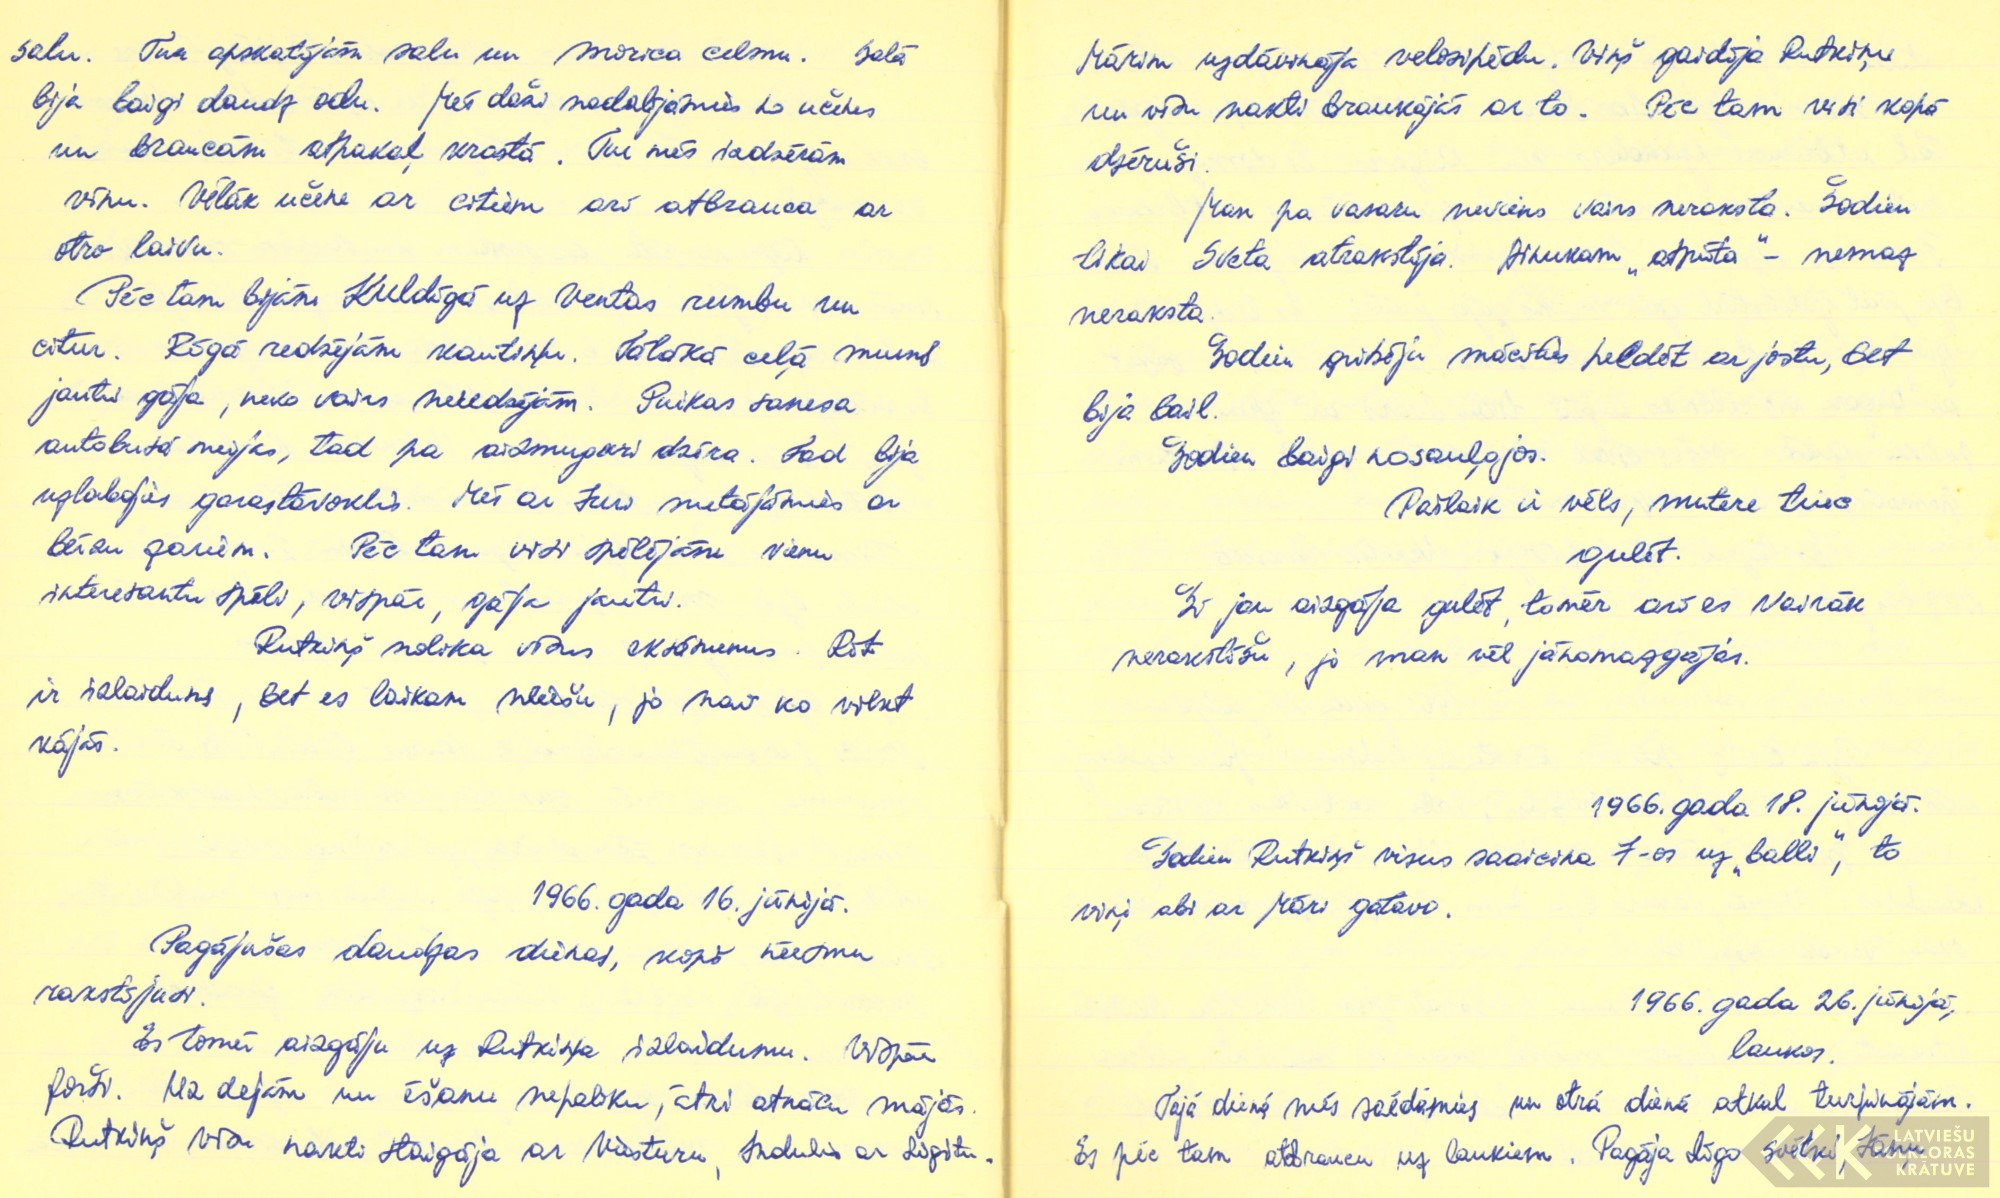 salu. Tur apskatījām salu un Morica celmu. Salā
bija baigi daudz odu. Mēs daži nodalījāmies no učenes
un braucām atpakaļ krastā. Tur mēs izdzērām
vīnu. Vēlāk učene ar citiem arī atbrauca ar
otro laivu.
Pēc tam bijām Kuldīgā uz Ventas rumbu un
citur. Rīgā redzējām kautiņu. Tālākā ceļā mums
jautri gāja, neko vairs neredzējām. Puikas sanesa
autobusā meijas, tad pa aizmuguri dzēra. Tad bija
uzlabojies garastāvoklis. Mēs ar Juri metājāmies ar
bērzu zariem. Pēc tam visi spēlējām vienu
interesantu spēli, vispār, gāja jautri.
Rutkiņš nolika visus eksāmenus. Rīt
ir izlaidums, bet es laikam neiešu, jo nav ko vilkt
kājās.
1966. gada 16. jūnijā.
Pagājušas daudzas dienas, kopš neesmu
rakstījusi.
Es tomēr aizgāju uz Rutkiņa izlaidumu. Vispār
forši. Uz dejām un ēšanu nepaliku, ātri atnācu mājās.
Rutkiņš visu nakti staigāja ar Viesturu, Induli ar Ligitu.
Mārim uzdāvināja velosipēdu. Viņš gaidīja Rutkiņu
un visu nakti braukājās ar to. Pēc tam visi kopā
dzēruši.
Man pa vasaru neviens vairs neraksta. Šodien
tikai Sveta atrakstīja. Ainukam „atpūta" – nemaz
neraksta.
Šodien gribēju mācīties peldēt ar jostu, bet
bija bail.
Šodien baigi nosauļojos.
Pašlaik ir vēls, mutere triec
gulēt.
Šī jau aizgāja gulēt, tomēr arī es vairāk
nerakstīšu, jo man vēl jānomazgājas.
1966. gada 18. jūnijā.
Šodien Rutkiņš visus saaicina 7-os uz „balli", to
viņi abi ar Māri gatavo.
1966. gada 26. jūnijā,
laukos.
Tajā dienā mēs saēdāmies un otrā dienā atkal turpinājām.
Es pēc tam atbraucu uz laukiem. Pagāja Līgo svētki, Jāņu
LATVIEŠU
FOLKLORAS
KRĀTUVE